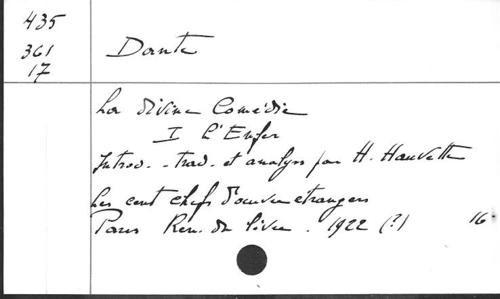 435
361
17
Dante
La divine Comédie
I L'Enfer
Introd. - trad. et analyse par H. Hauvette
Les cent chefs d'œuvre etrangers
Paris Ren. du livre . 1922 (?) 16